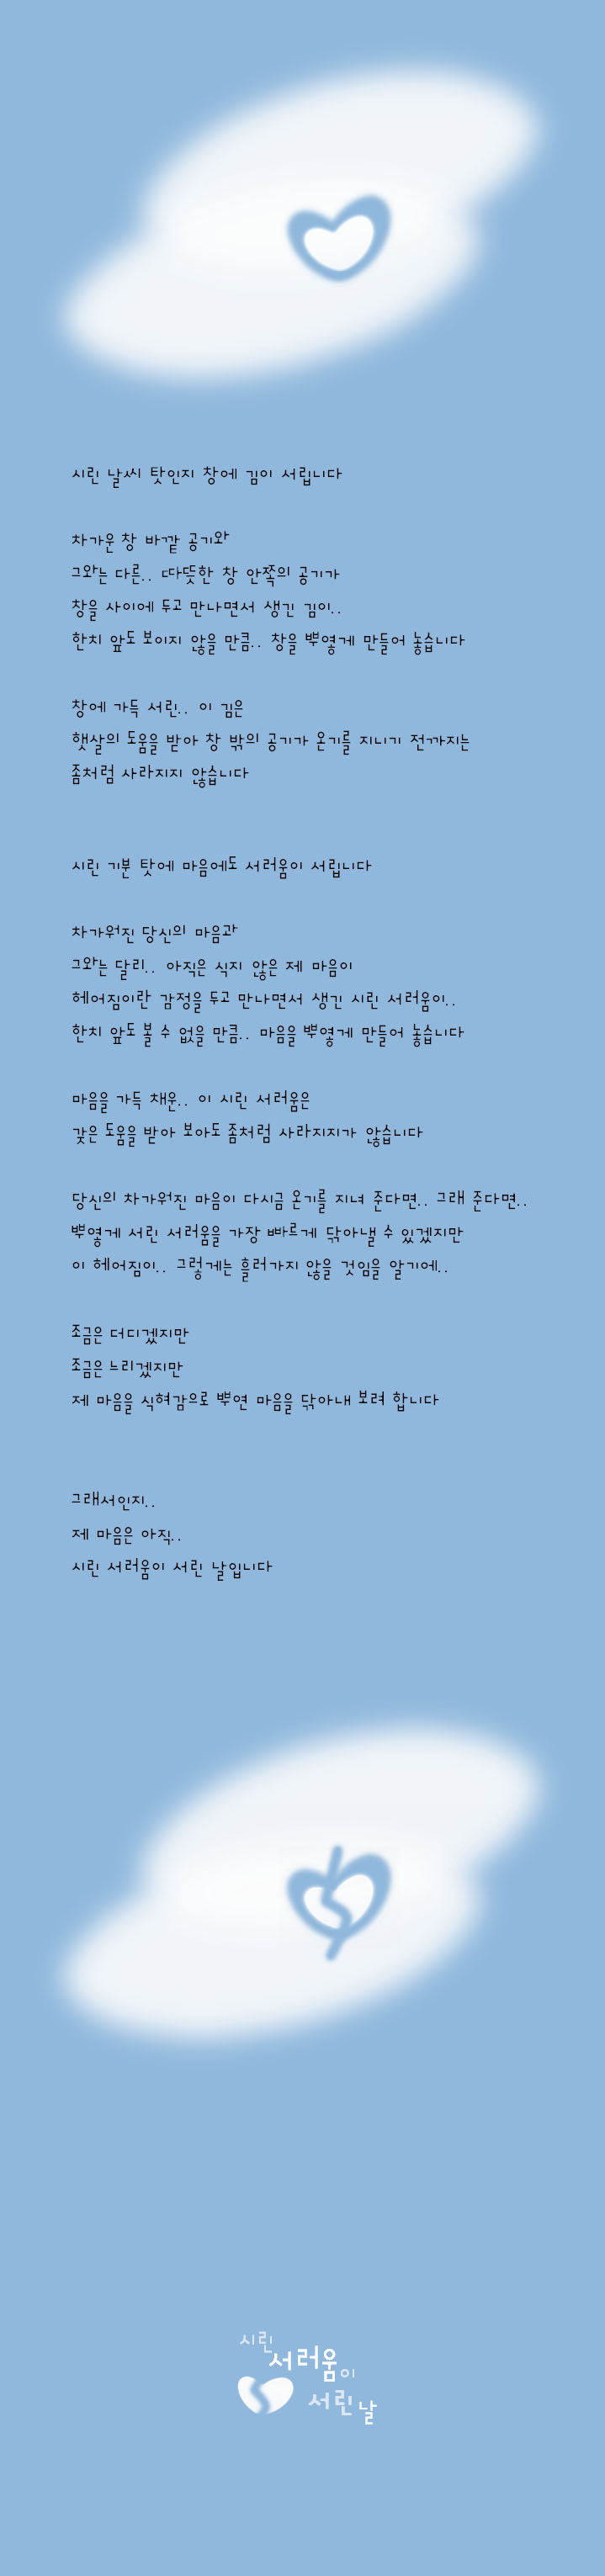 시린 날씨 탓인지 창에 김이 서립니다
차가운 창 바깥 공기와
그와는 다른.. 따뜻한 창 안쪽의 공기가
창을 사이에 두고 만나면서 생긴 김이..
한치 앞도 보이지 않을 만큼.. 창을 뿌옇게 만들어 놓습니다
창에 가득 서린.. 이 김은
햇살의 도움을 받아 창 밖의 공기가 온기를 지니기 전까지는
좀처럼 사라지지 않습니다
시린 기분 탓에 마음에도 서러움이 서립니다
차가워진 당신의 마음과
그와는 달리.. 아직은 식지 않은 제 마음이
헤어짐이란 감정을 두고 만나면서 생긴 시린 서러움이..
한치 앞도 볼 수 없을 만큼.. 마음을 뿌옇게 만들어 놓습니다
마음을 가득 채운.. 이 시린 서러움은
갖은 도움을 받아 보아도 좀처럼 사라지지가 않습니다
당신의 차가워진 마음이 다시금 온기를 지녀 준다면.. 그래 준다면..
뿌옇게 서린 서러움을 가장 빠르게 닦아낼 수 있겠지만
이 헤어짐이.. 그렇게는 흘러가지 않을 것임을 알기에..
조금은 더디겠지만
조금은 느리겠지만
제 마음을 식혀감으로 뿌연 마음을 닦아내 보려 합니다
그래서인지..
제 마음은 아직..
시린 서러움이 서린 날입니다
시린
서러움이
서린 날